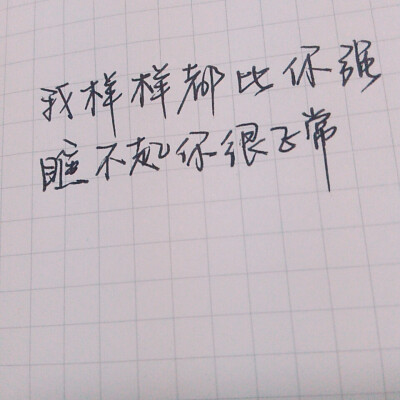 我样样都比你强
瞧不起你很正常